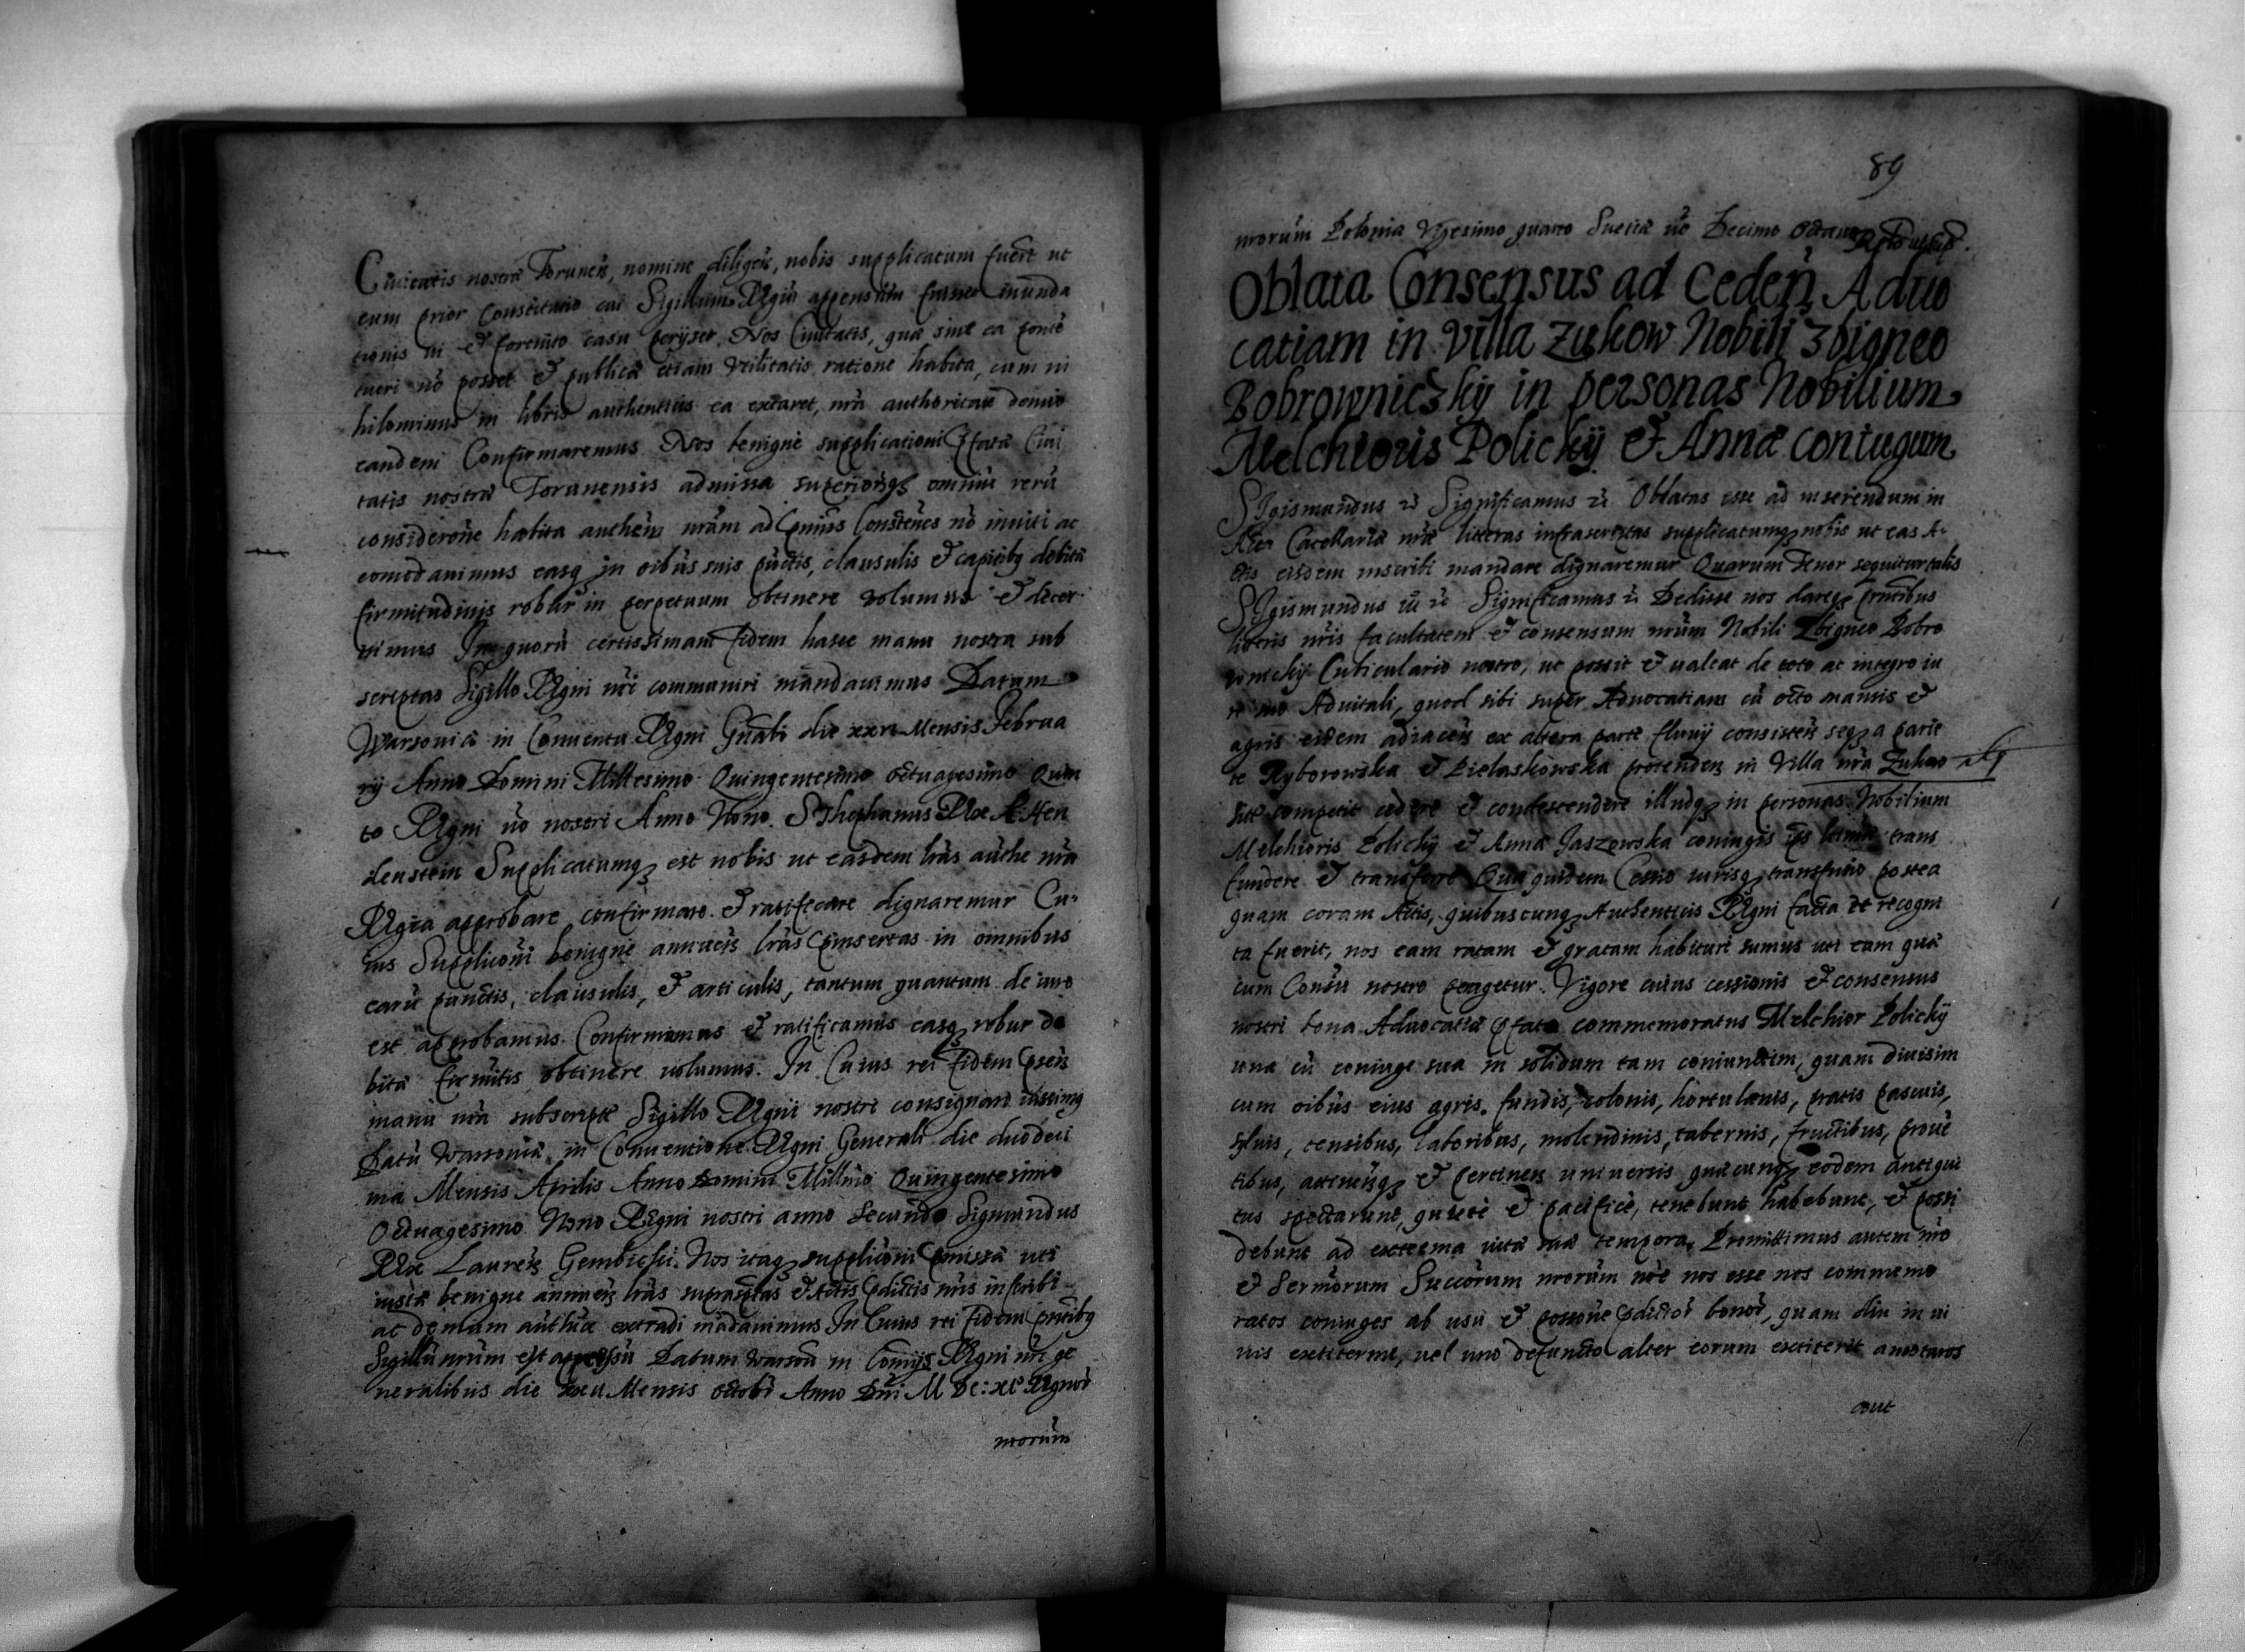 Ciuitatis nostræ Torunen̄, nomine diligēr, nobis supplicatum fuerit ut
cum prior Constitutio cui Sigillum Regni appensum fuerat inunda
tionis ui & fortuito casu perijsset, Nos Ciuitatis, quæ sine ea
tueri nō posset & publicæ etiam utilitatis ratione habita, cum ni
hilominus in libris authenticis ea extaret, nr̄a authoritate denuo
eandem Confirmaremus. Nos benignè supplicationi p̄fatæ Ciui
tatis nostræ Torunensis admissa superiorūq; omniū rerū
consideroñe habita authen̄ nr̄am ad p̄miss nō inuiti ac
comodauimus easq; in oībus suis pūctis, clausulis & capitibq; debitæ
firmitudinis robur in perpetuum obtinere volumus & decer
nimus In quorū certissimam fidem hasce manu nostra sub
scriptas Sigillo Regni nr̄i communiri mandauimus Datum
Warsouiæ in Conuentu Regni Gn̄ali die Mensis Februa
rij Anno Domini Millesimo Quingentesimo octuagesimo Quin
to Regni ūo nostri Anno Nono. Sthephanus Rex H: Hen
denstein Supplicatumq; est nobis ut easdem lr̄as authe nr̄a
Regia approbare, confirmare & ratificare dignaremur Cu-
ius Supplicōni benigne annuen̄ lr̄as p̄insertas in omnibus
earū punctis, clausulis, & articulis, tantum quantum de iure
est approbamus Confirmamus & ratificamus easq; robur de
bitæ firmitis obtinere uolumus. In Cuius rei fidem p̄sen̄
manu nr̄a subscriptæ Sigillo Regni nostri consignari iussimq
Datū Warsouiæ in Conuentione Regni Generali die duodeci
ma Mensis Aprilis Anno Domini Millmo Quingentesimo
Octuagesimo Nono Regni nostri anno Secundo Sigmundus
Rex Lauren̄ Gembicki. Nos itaq; supplicōni p̄missæ uti
iustæ benigne annuen̄ lr̄as suprascriptas & Actis p̄dictis nr̄is inscribi
ac demum extradi mādauimus In Cuius rei fidem p̄ntibq
Sigillū nr̄um est appensū Datum Warsou in Comijs Regni nr̄i ge
neralibus die Mensis octobr Anno Dn̄i M Dc: Regnor̄
nrorūm
89
nrorūm Poloniæ Vigesimo quarto Sueciæ ūo Decimo Octauo
Oblata Consensus ad Ceden̄ Aduo
catiam in Villa Zukow Nobili Zbigneo
Bobrowniczky in personas Nobilium
Melchioris Policky & Annæ Coniugum
SIgismundus rc̄ Significamus rc̄ Oblatas esse ad inserendum in
Acta Cācellariæ nr̄æ litteras infrascriptas supplicatumq; nobis ut eas A-
ctis eisdem inscribi mandare dignaremur Quarum tenor sequitur talis
SIgismundus rc̄ Significamus rc̄ Dedisse nos dareq; p̄ntibus
literis nr̄is facultatem & consensum nr̄um Nobili Zbigneo Bobro
wnicky Cubiculario nostro, ut possit & ualeat de toto ac integro iu
re suo Aduitali, quod sibi super Aduocatiam cū octo mansis &
agris eidem adiacen̄ ex altera parte fluuij consisten̄ seq; a parte
te Ryborowska & Bielaskowska protenden̄ in Villa nr̄a Zukow
competit cedere & condescendere illudq; in personas Nobilium
Melchioris Policky & Annæ Jaszowska coniugis trans
fundere & transferre Quæ quidem Cessio iurisq; transfusio postea
quam coram Actis, quibuscunq; Authenticis Regni facta et recogni
ta fuerit, nos eam ratam & gratam habituri sumus uti eam quæ
cum Consū nostro peragetur. Vigore cuius cessionis & consensus
nostri bona Aduocatiæ p̄fatæ commemoratus Melchior Policky
una cū coniuge sua in solidum tam coniunctim, quam diuisim
cum oībus eius agris, fundis, colonis, hortulanis, pratis pascuis,
syluis, censibus, laboribus, molendinis, tabernis, fructibus, prouē
tibus, attinen̄q; & pertinen̄ uniuersis quæcunq; eodem antiqui
tus spectarunt, quietè & pacificè, tenebunt habebunt, & possi
debunt ad extrema uitæ suæ tempora. Promittimus autem nr̄o
& Sermorum Succōrum nrorūm nōie nos esse nos commemo
ratos coniuges ab usu & possōne p̄dictor̄ bonor̄, quam diu in ui
uis extiterint, uel uno defuncto alter eorum extiterit amoturos
aut